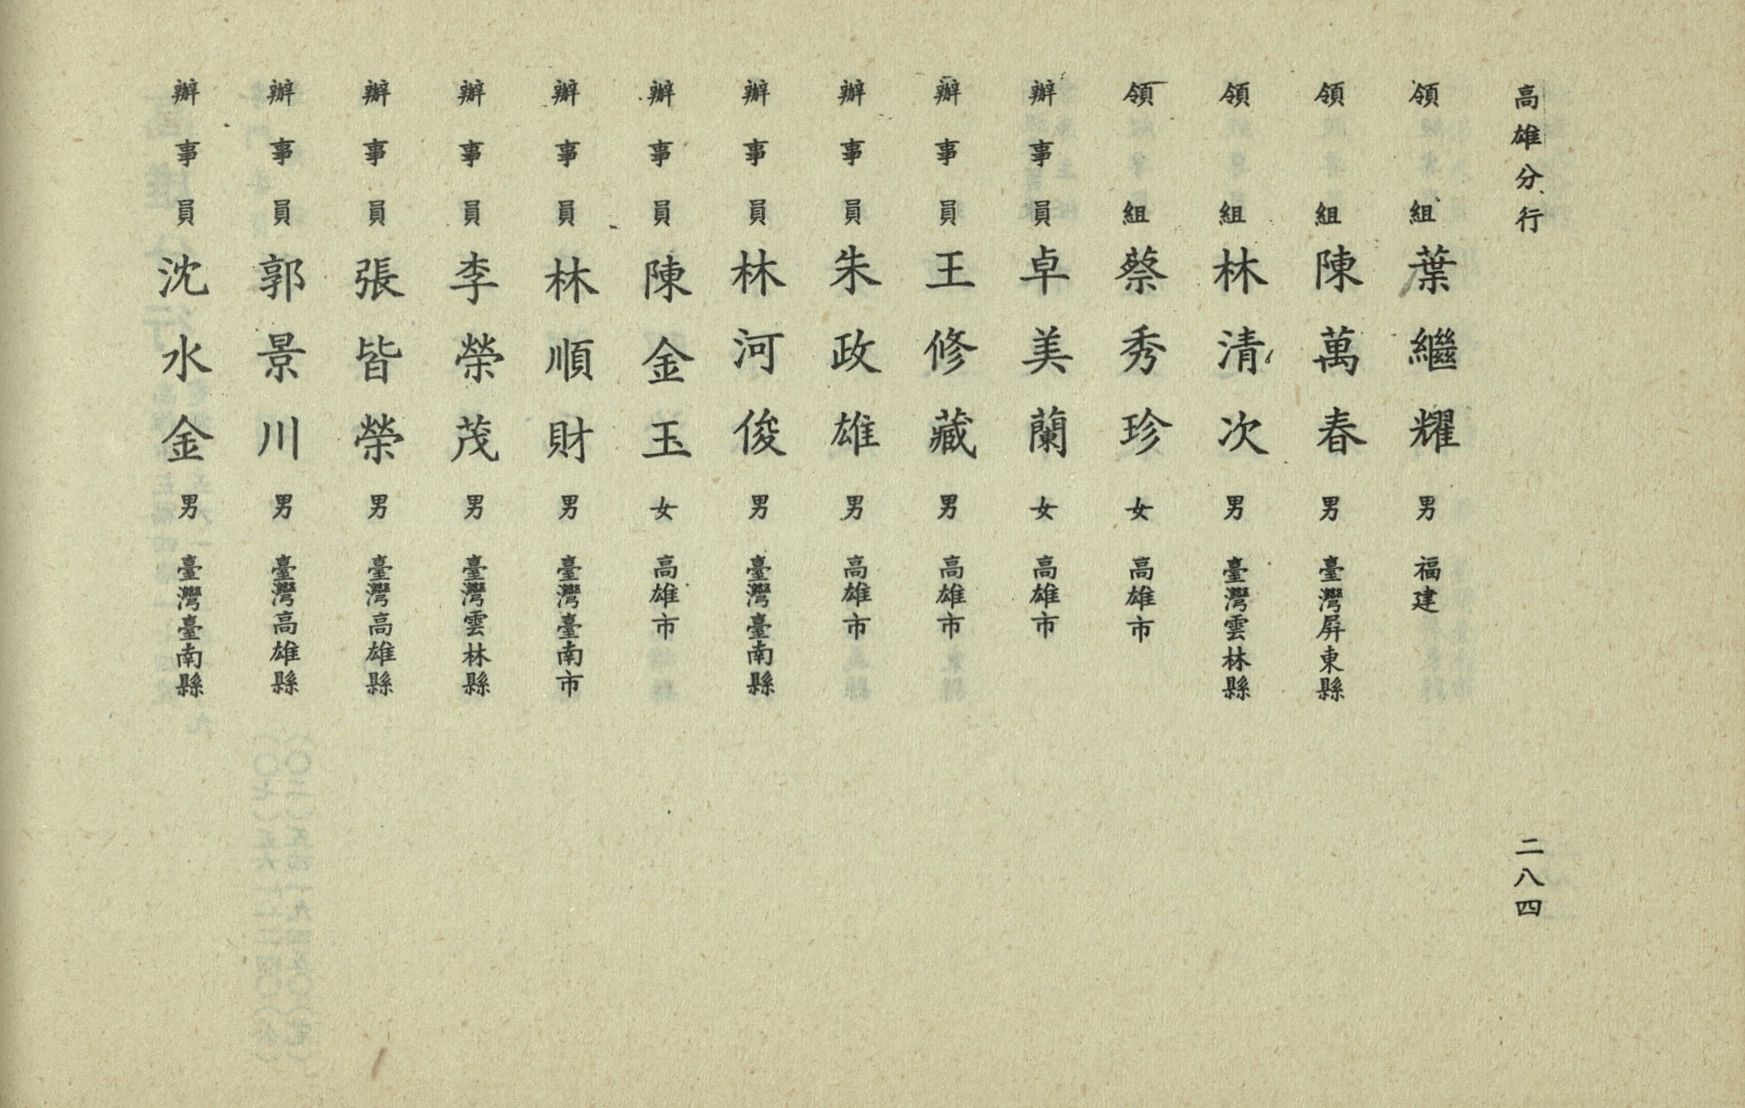 高雄分行
二八四
領組 葉繼耀 男 福建
領組 陳萬春 男 臺灣屏東縣
領組 林清次 男 臺灣雲林縣
領組 蔡秀珍 女 高雄市
辦事員 卓美蘭 女 高雄市
辦事員 王修藏 男 高雄市
辦事員 朱政雄 男 高雄市
辦事員 林河俊 男 臺灣臺南縣
辦事員 陳金玉 女 高雄市
辦事員 林順財 男 臺灣臺南市
辦事員 李榮茂 男 臺灣雲林縣
辦事員 張皆榮 男 臺灣高雄縣
辦事員 郭景川 男 臺灣高雄縣
辦事員 沈水金 男 臺灣臺南縣